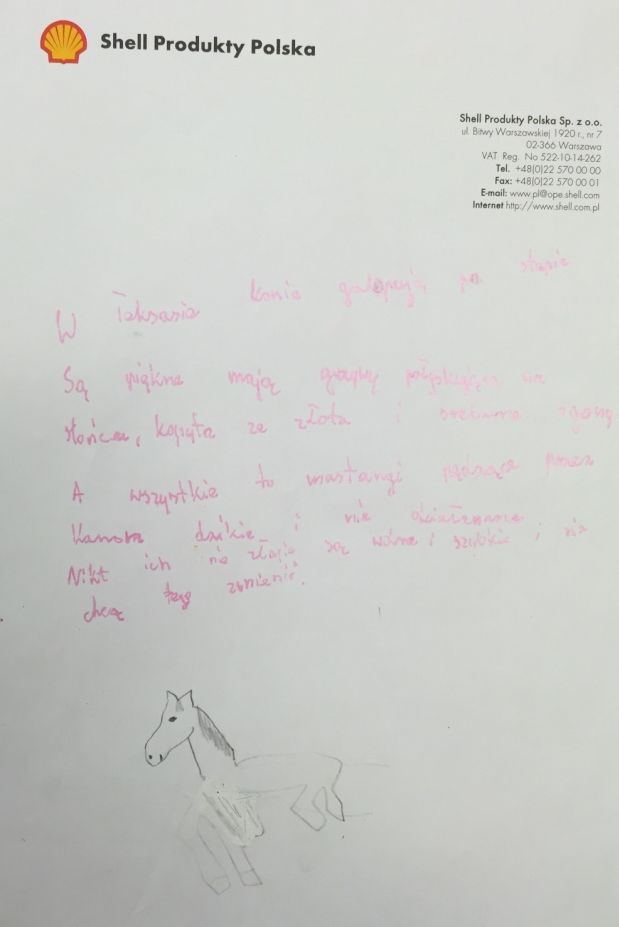 Shell Produkty Polska
Shell Produkty Polska Sp. z o.o.
ul. Bitwy Warszawskiej 1920 r., nr 7
02-366 Warszawa
VAT Reg. No 522-10-14-262
Tel. +48(0)22 570 00 00
Fax: +48(0)22 570 00 01
E-mail: www.pl@ope.shell.com
Internet http://www.shell.com.pl
W Teksasie konie galopują po stepie
Są piękne mają grzywy połyskujące na
słońcu, kopyta ze złota i srebrne ogony
A wszystkie to mustangi pędzące przez
dzikie i nie
Nikt ich nie złapie są wolne i szybkie i nie
chcą tego zmienić.